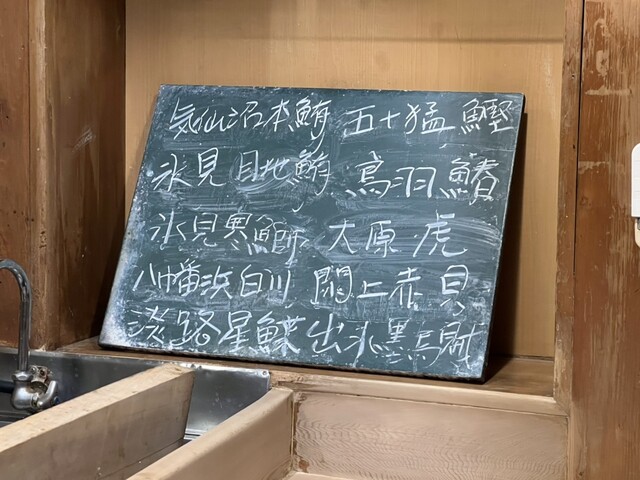 気仙沼本鮪 五十猛 鰹
氷見 目地鮪 鳥羽 鰆
氷見寒鰤 大原 虎
八幡浜白川 閖上赤貝
淡路星鰈 出水墨烏賊